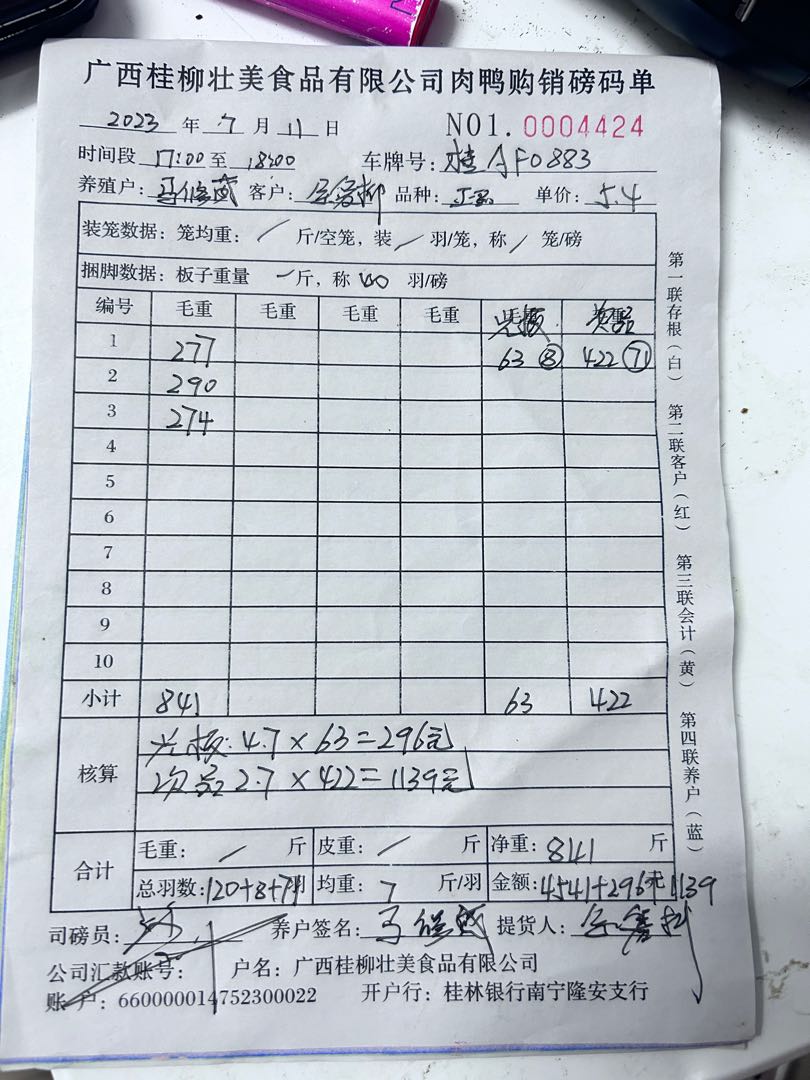 广西桂柳壮美食品有限公司肉鸭购销磅码单
2023 年 7 月 11 日 NO1. 0004424
时间段 17:00 至 18:00 车牌号: 桂AF0883
养殖户: 客户: 品种: 正品 单价: 5.4
装笼数据: 笼均重: / 斤/空笼, 装 / 羽/笼, 称 / 笼/磅
捆脚数据: 板子重量 一 斤, 称 40 羽/磅
编号 毛重 毛重 毛重 毛重 光板 次品
1 277 63 ⑧ 422 71
2 290
3 274
4
5
6
7
8
9
10
小计 841 63 422
核算
光板: 4.7 × 63 = 296元
次品 2.7 × 422 = 1139元
合计
毛重: / 斤 皮重: / 斤 净重: 841 斤
总羽数: 120+8+71 羽 均重: 7 斤/羽 金额: 4541+296元 1139
司磅员: 养户签名: 提货人:
公司汇款账号: 户名: 广西桂柳壮美食品有限公司
账户: 660000014752300022 开户行: 桂林银行南宁隆安支行
第一联存根(白) 第二联客户(红) 第三联会计(黄) 第四联养户(蓝)